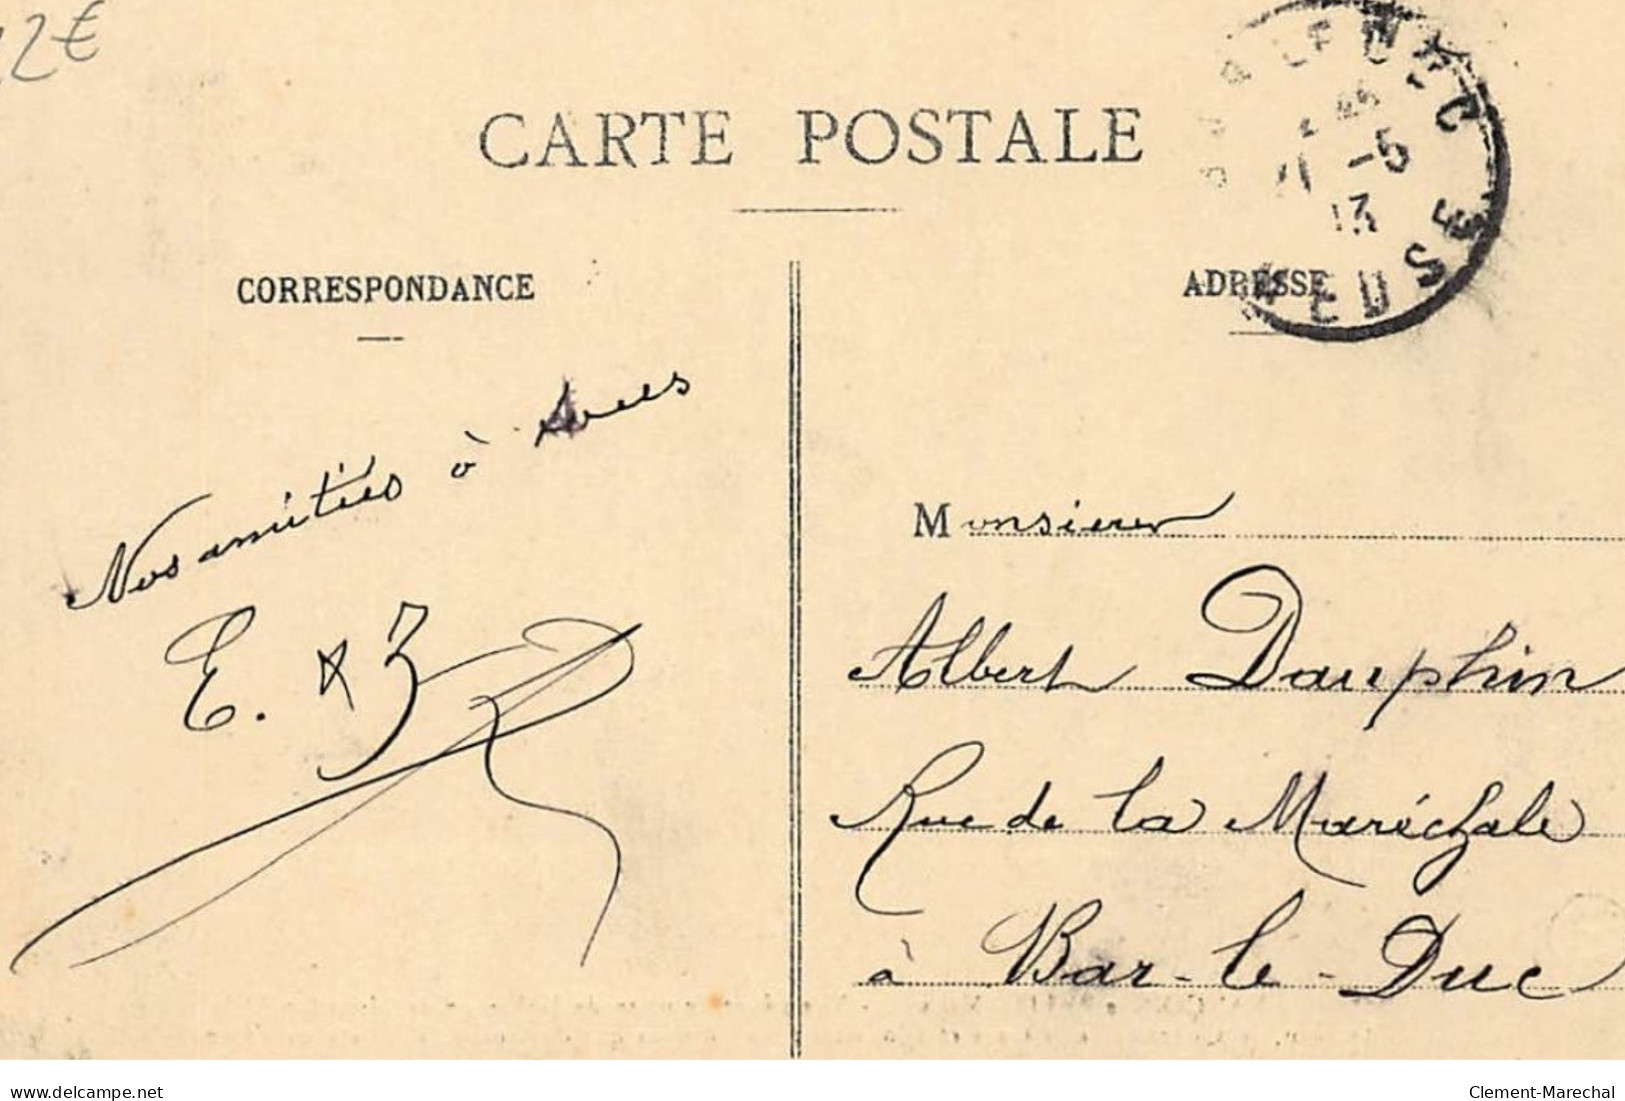 2€
CARTE POSTALE
BAR LE DUC
-5
13
MEUSE
CORRESPONDANCE
ADRESSE
Nos amitiés à tous
E.
Monsieur
Albert Dauphin
Rue de la Maréchale
à Bar-le-Duc
delcampe.net
Clement-Marechal